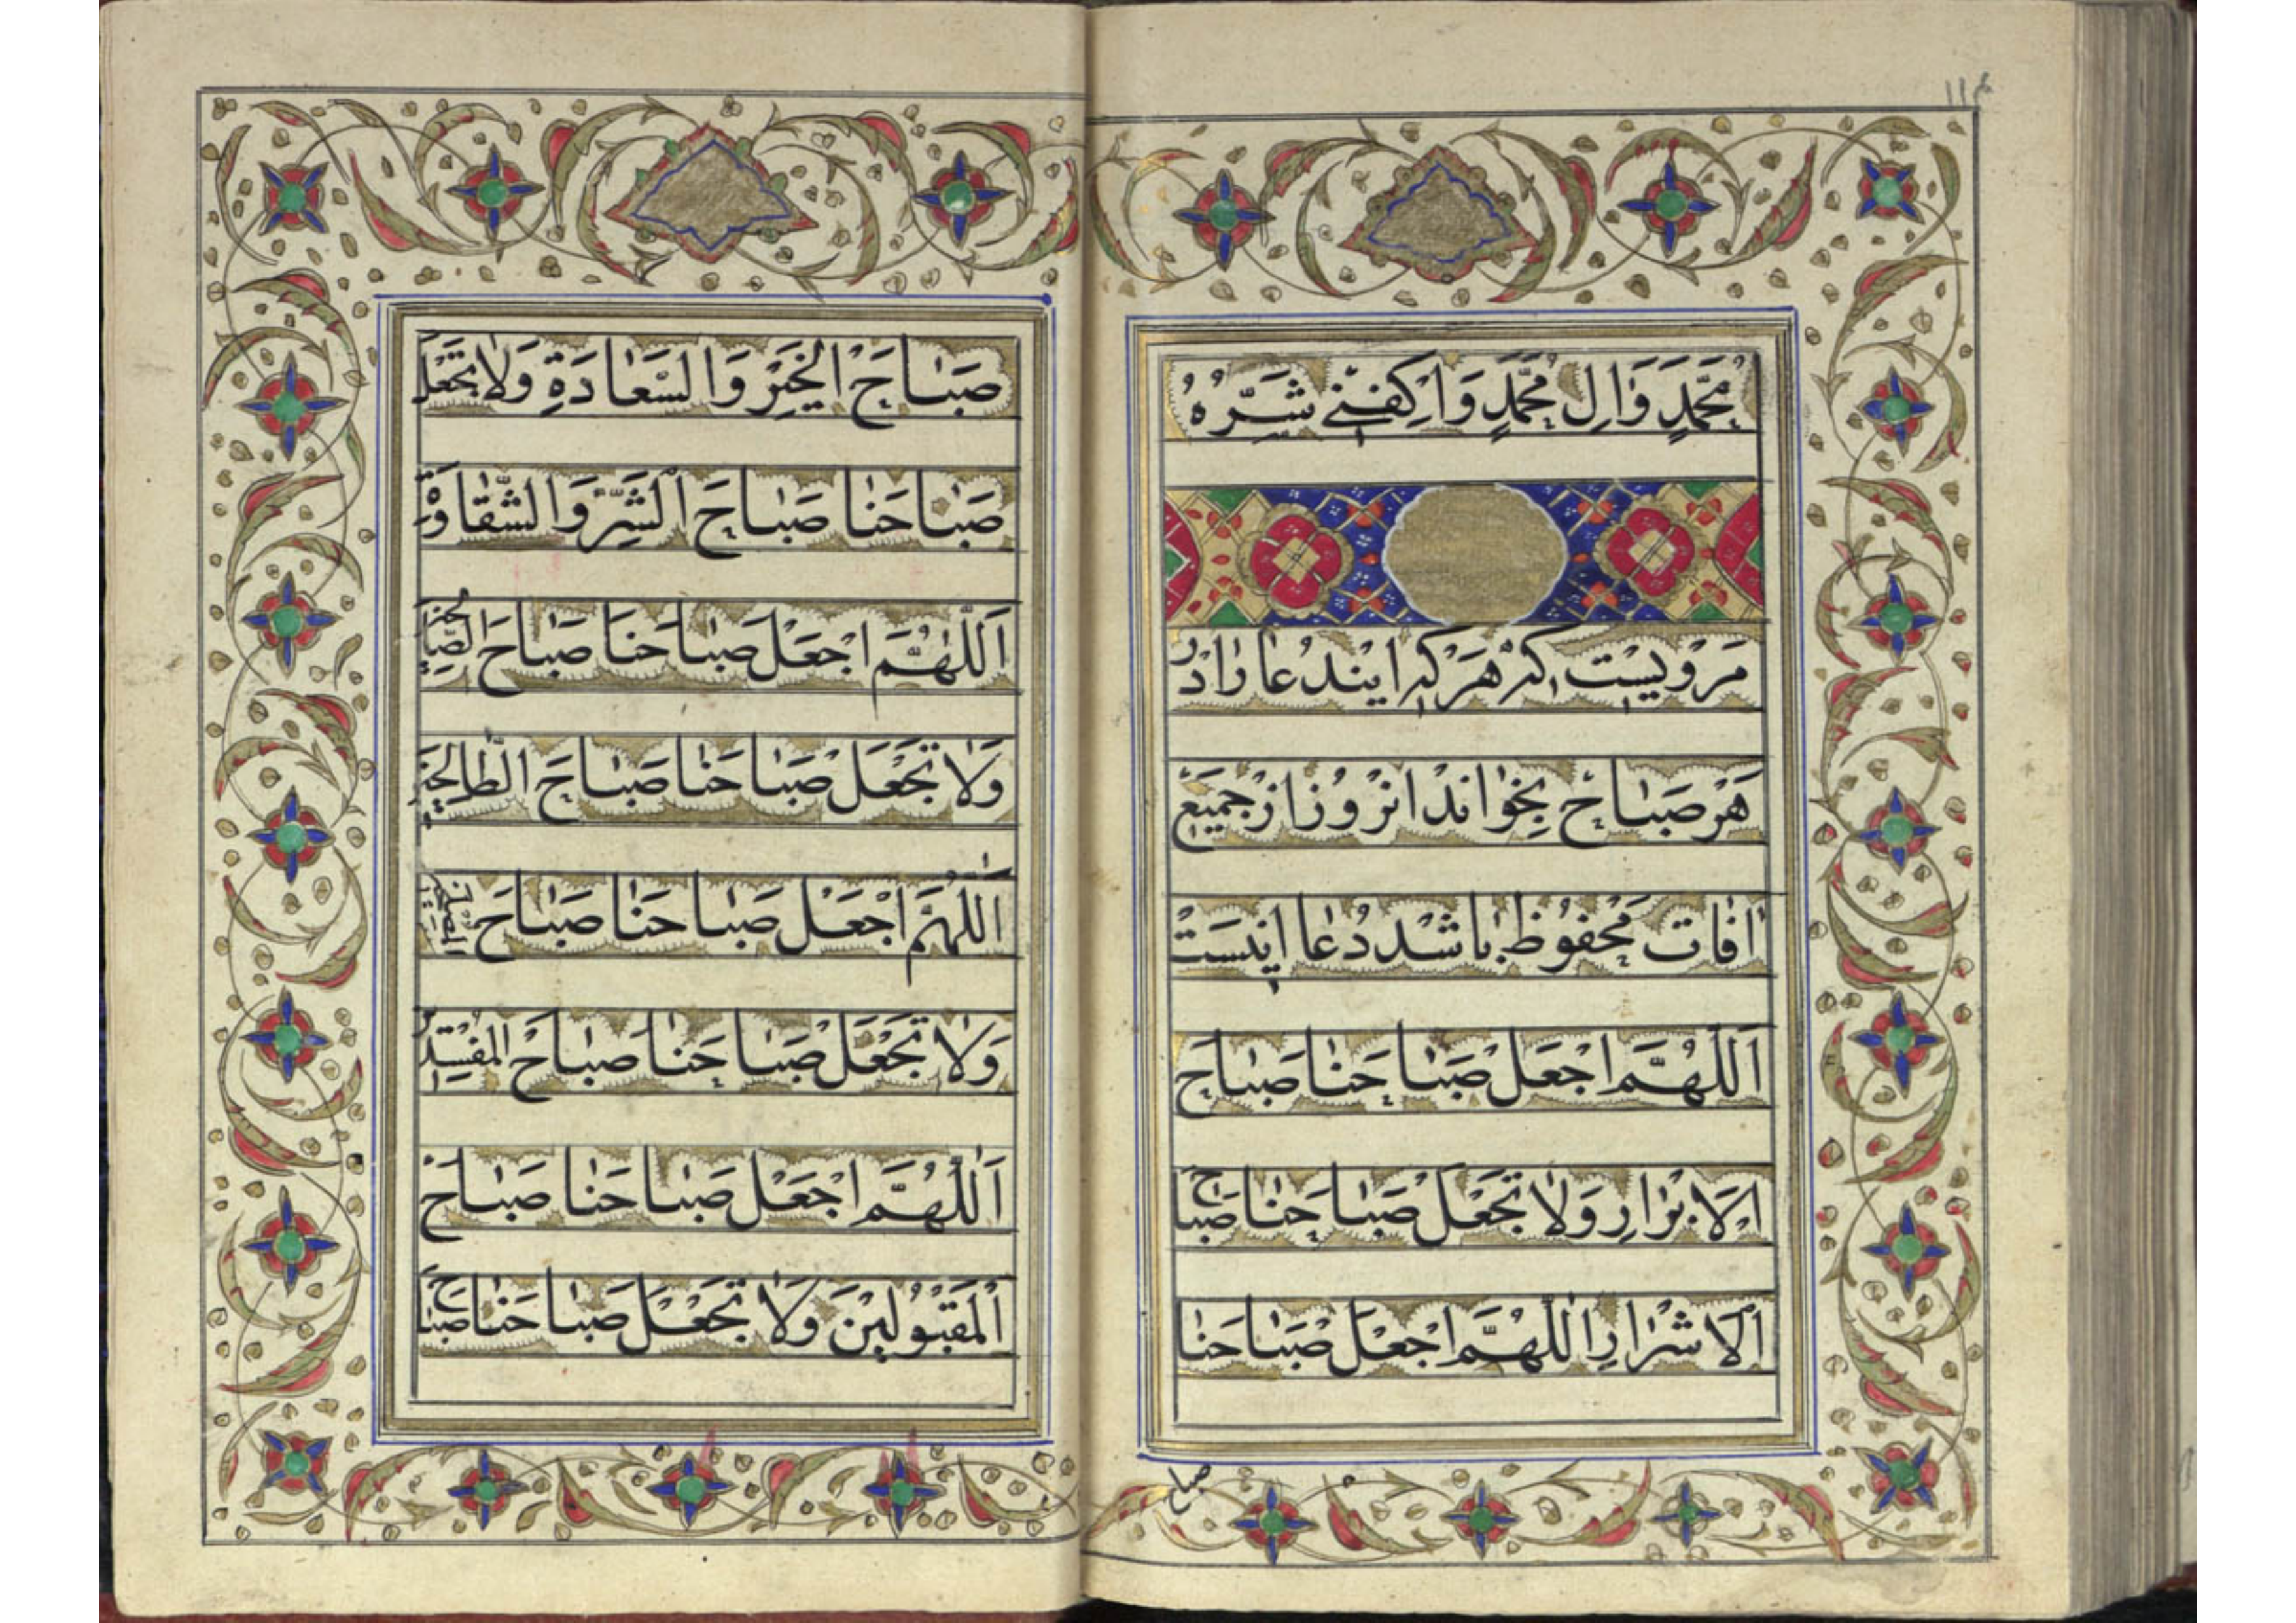 ١١٤
مُحَمَّدٍ وَاٰلِ مُحَمَّدٍ وَاكْفِنِے شَرَّهُ
مَرْويسْت كه هَركه ايندُعا رادَرْ
هَر صَباح بِخوٰاند انروُز ازْ جَميَع
اٰفات مَحْفوُظ باشَد دُعا اينسَتْ
اَللّٰهُمَّ اجْعَلْ صَبٰاحَنٰا صَبٰاحَ
الْاَبْرٰارِ وَلٰا تَجْعَلْ صَبٰاحَنٰا صَباحَ
الْاَشْرٰارِ اللّٰهُمَّ اجْعَلْ صَبٰاحَنٰا
صباح
صَبٰاحَ الْخَيْرِ وَالسَّعٰادَةِ وَلٰا تَجْعَلْ
صَبٰاحَنٰا صَبٰاحَ الْشَرِّ وَالشَّقٰاوَةِ
اَللّٰهُمَّ اجْعَلْ صَبٰاحَنَا صَبٰاحَ الصّٰالِحينَ
وَلٰا تَجْعَلْ صَبٰاحَنٰا صَبٰاحَ الطّٰالِحينَ
اَللّٰهُمَّ اجْعَلْ صَبٰاحَنٰا صَبٰاحَ
وَلٰا تَجْعَلْ صَبٰاحَنٰا صَبٰاحَ الْمُفْسِدينَ
اَللّٰهُمَّ اجْعَلْ صَبٰاحَنٰا صَبٰاحَ
الْمَقْبُولينَ وَلٰا تَجْعَلْ صَبٰاحَنٰا صَباحَ